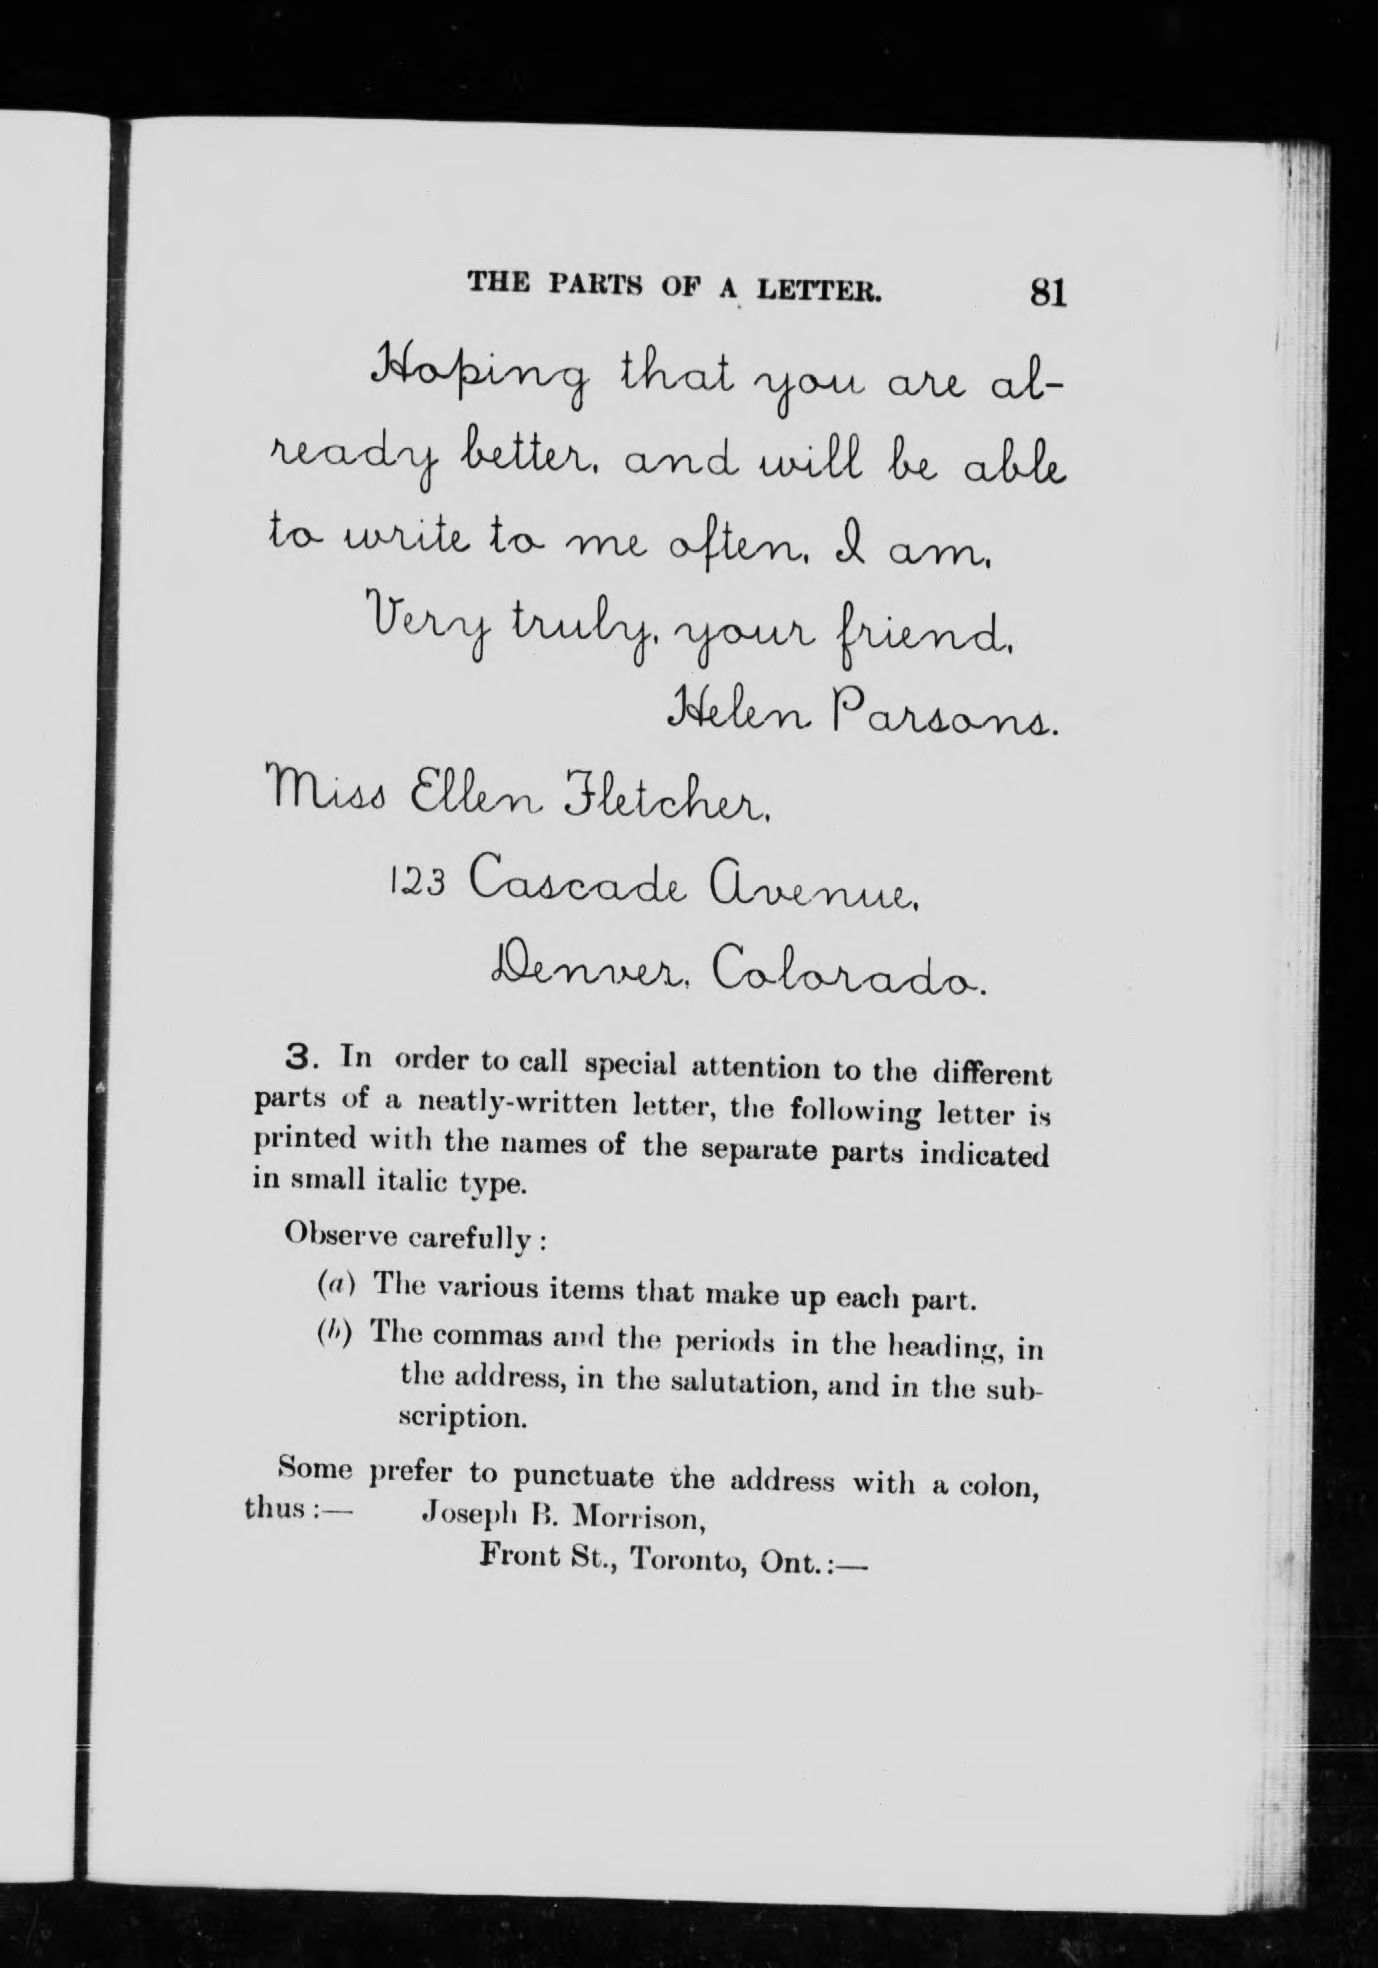 THE PARTS OF A LETTER. 81
Hoping that you are al-
ready better, and will be able
to write to me often, I am,
Very truly, your friend,
Helen Parsons.
Miss Ellen Fletcher,
123 Cascade Avenue,
Denver, Colorado.
3. In order to call special attention to the different
parts of a neatly-written letter, the following letter is
printed with the names of the separate parts indicated
in small italic type.
Observe carefully :
(a) The various items that make up each part.
(b) The commas and the periods in the heading, in
the address, in the salutation, and in the sub-
scription.
Some prefer to punctuate the address with a colon,
thus :— Joseph B. Morrison,
Front St., Toronto, Ont. :—